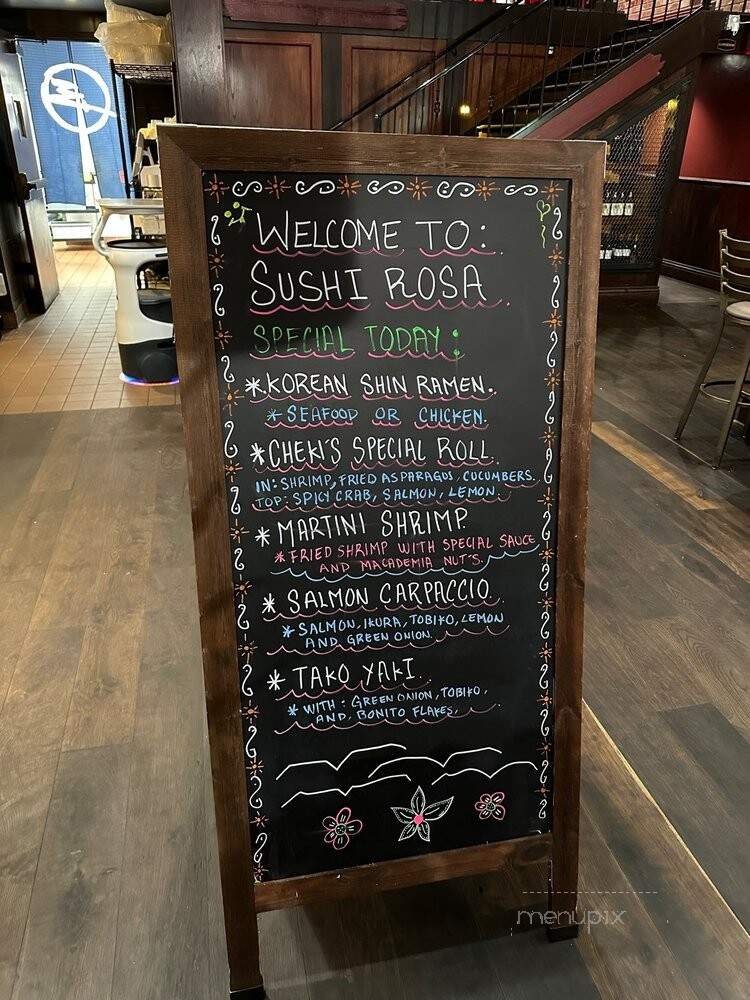 WELCOME TO:
SUSHI ROSA
SPECIAL TODAY:
*KOREAN SHIN RAMEN.
*SEAFOOD OR CHICKEN.
*CHEKI'S SPECIAL ROLL.
IN: SHRIMP, FRIED ASPARAGUS, CUCUMBERS.
TOP: SPICY CRAB, SALMON, LEMON.
* MARTINI SHRIMP.
*FRIED SHRIMP WITH SPECIAL SAUCE
AND MACADEMIA NUT'S.
* SALMON CARPACCIO.
*SALMON, IKURA, TOBIKO, LEMON
AND GREEN ONION.
* TAKO YAKI.
* WITH: GREEN ONION, TOBIKO,
AND, BONITO FLAKES,
menupix